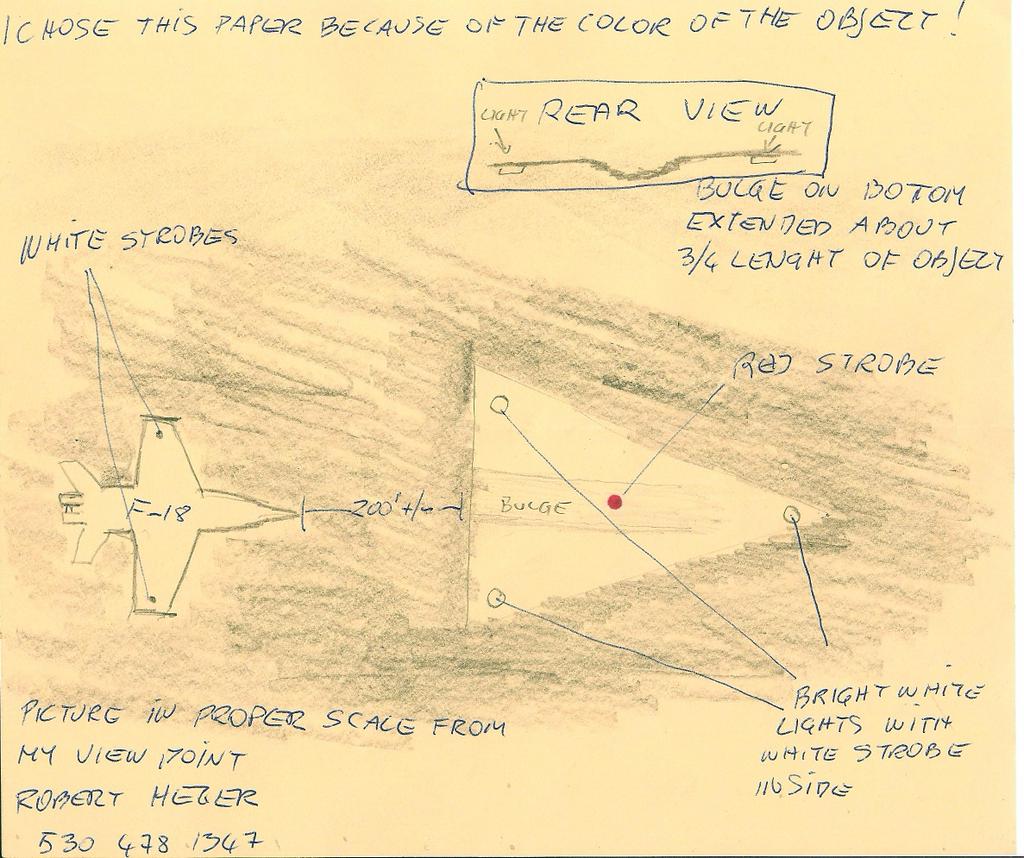 I CHOSE THIS PAPER BECAUSE OF THE COLOR OF THE OBJECT!
REAR VIEW
LIGHT
LIGHT
BULGE ON BOTTOM
EXTENDED ABOUT
3/4 LENGHT OF OBJECT
WHITE STROBES
RED STROBE
F-18
200' +/-
BULGE
BRIGHT WHITE
LIGHTS WITH
WHITE STROBE
INSIDE
PICTURE IN PROPER SCALE FROM
MY VIEW POINT
ROBERT HEGER
530 478 1347